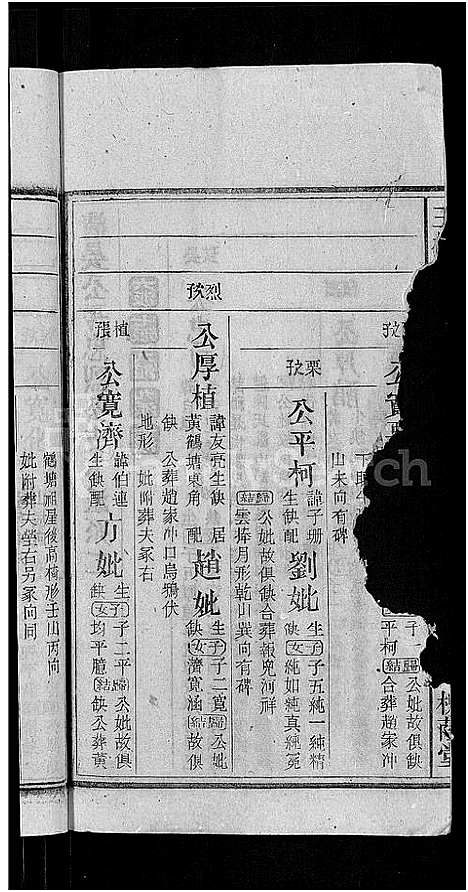 王
槐蔭堂
公寬
子一 歸 公妣故俱缺
平柯 結 合葬趙家冲
山未向有碑
栗孜
公平柯
諱子珊
生缺配
劉妣
生子子五純一純精
缺女純如純真純冕
歸結 公妣故俱缺合葬報兜河祥
雲捧月形乾山巽向有碑
烈孜
公厚植
諱友亮生缺 居
黃鶴塘東角 配
趙妣
生子子二寬 歸 公妣
缺女濟寬涵 結 故俱
缺 公葬趙家冲口烏鴉伏
地形 妣附葬夫冢右
植張
公寬濟
諱伯連
生缺配
方妣
生子子二平 歸 公妣故俱
缺女均平臆 結 缺公葬黃
鶴塘祖屋後高橋形壬山丙向
妣附葬夫塋右另冢向同